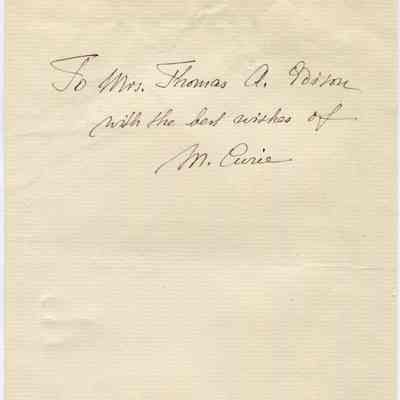 To Mrs. Thomas A. Edison
with the best wishes of
M. Curie